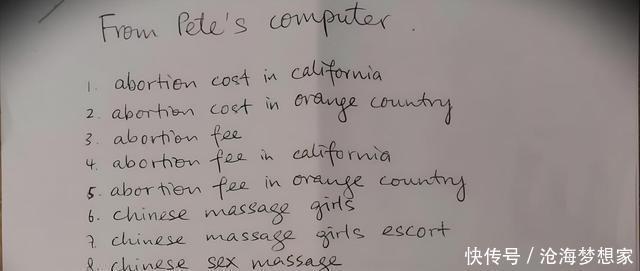 From Pete's computer.
1. abortion cost in california
2. abortion cost in orange country
3. abortion fee
4. abortion fee in california
5. abortion fee in orange country
6. chinese massage girls
7. chinese massage girls escort
8. chinese sex massage
快传号 / 沧海梦想家